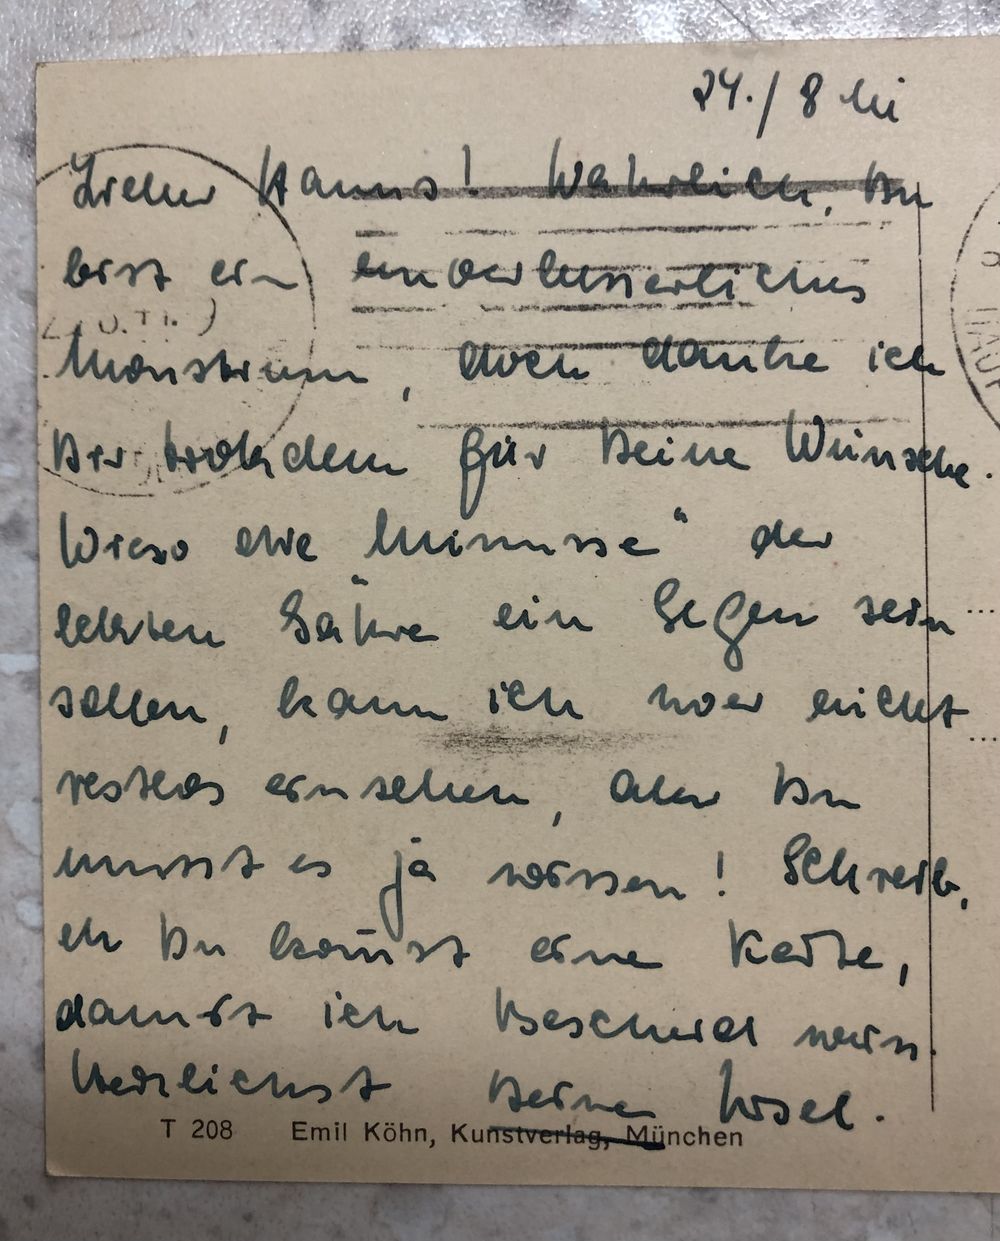 24./8
Lieber Hanns! Wahrlich, Du
bist ein unverbesserliches
Monstrum, doch danke ich
Dir trotzdem für Deine Wünsche.
Wieso die „Minusse“ der
letzten Jahre ein Segen sein
sollen, kann ich zwar nicht
restlos einsehen, aber Du
musst es ja wissen! Schreib,
eh Du kom̄st eine Karte,
damit ich Bescheid weiss.
Herzlichst Deine
T 208 Emil Köhn, Kunstverlag, München